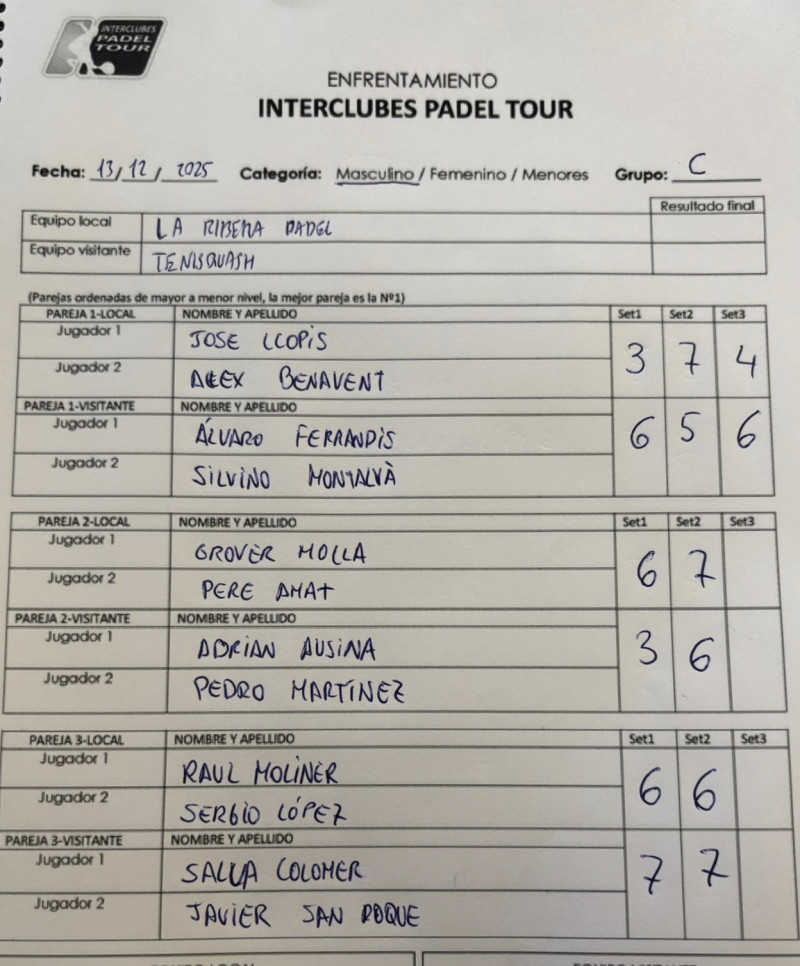 INTERCLUBES
PADEL
TOUR
ENFRENTAMIENTO
INTERCLUBES PADEL TOUR
Fecha: 13/12/2025 Categoría: Masculino / Femenino / Menores Grupo: C
Resultado final
Equipo local LA RIBERA PADEL
Equipo visitante TENISQUASH
(Parejas ordenadas de mayor a menor nivel, la mejor pareja es la Nº1)
PAREJA 1-LOCAL NOMBRE Y APELLIDO Set1 Set2 Set3
Jugador 1 JOSE LLOPIS 3 7 4
Jugador 2 ALEX BENAVENT
PAREJA 1-VISITANTE NOMBRE Y APELLIDO
Jugador 1 ÁLVARO FERRANDIS 6 5 6
Jugador 2 SILVINO MONTALVÀ
PAREJA 2-LOCAL NOMBRE Y APELLIDO Set1 Set2 Set3
Jugador 1 GROVER MOLLA 6 7
Jugador 2 PERE AMAT
PAREJA 2-VISITANTE NOMBRE Y APELLIDO
Jugador 1 ADRIAN AUSINA 3 6
Jugador 2 PEDRO MARTINEZ
PAREJA 3-LOCAL NOMBRE Y APELLIDO Set1 Set2 Set3
Jugador 1 RAUL MOLINER 6 6
Jugador 2 SERGIO LÓPEZ
PAREJA 3-VISITANTE NOMBRE Y APELLIDO
Jugador 1 COLOMER 7 7
Jugador 2 JAVIER SAN ROQUE